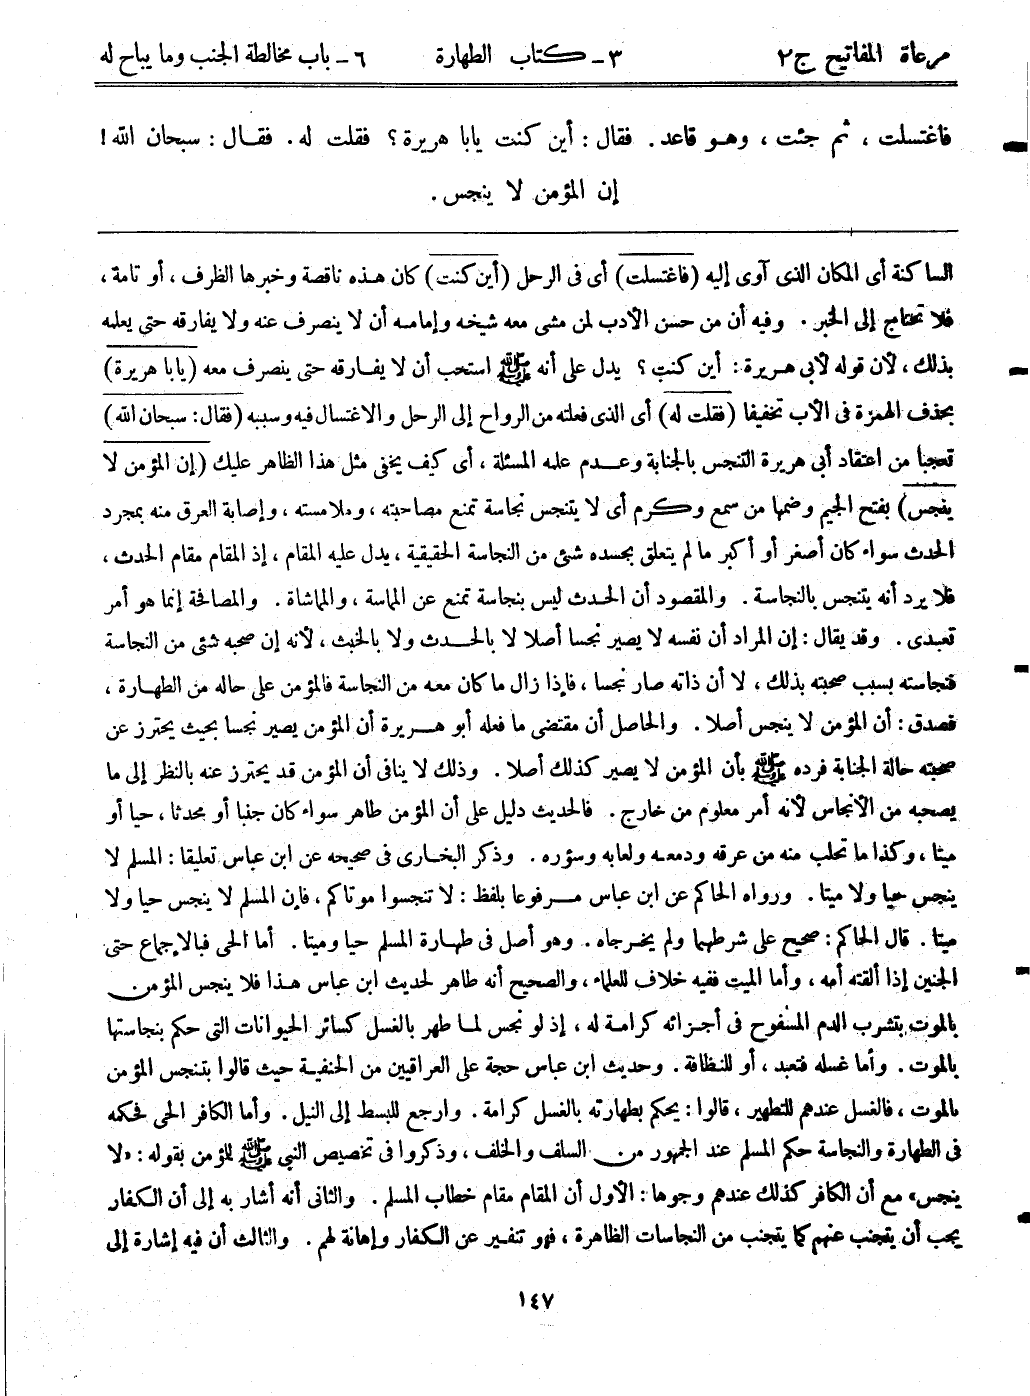 مرعاة المفاتيح ج٢ ٣ــ كتاب الطهارة ٦ــ باب مخالطة الجنب وما يباح له
فاغتسلت ، ثم جئت ، وهو قاعد. فقال : أين كنت يابا هريرة ؟ فقلت له. فقال : سبحان الله !
إن المؤمن لا ينجس .
الساكنة أى المكان الذى آوى إليه (فاغتسلت) أى فى الرحل (أين كنت) كان هذه ناقصة وخبرها الظرف ، أو تامة ،
فلا تحتاج إلى الخبر . وفيه أن من حسن الأدب لمن مشى معه شيخه وإمامه أن لا ينصرف عنه ولا يفارقه حتى يعلمه
بذلك ، لأن قوله لأبى هريرة : أين كنت ؟ يدل على أنه ﷺ استحب أن لا يفارقه حتى ينصرف معه (يابا هريرة)
بحذف الهمزة فى الأب تخفيفا (فقلت له) أى الذى فعلته من الرواح إلى الرحل والاغتسال فيه وسببه (فقال : سبحان الله)
تعجبا من اعتقاد أبى هريرة التنجس بالجنابة وعدم علمه المسئلة ، أى كيف يخفى مثل هذا الظاهر عليك (إن المؤمن لا
ينجس) بفتح الجيم وضمها من سمع وكرم أى لا يتنجس نجاسة تمنع مصاحبته ، وملامسته ، وإصابة العرق منه بمجرد
الحدث سواء كان أصغر أو أكبر ما لم يتعلق بجسده شئ من النجاسة الحقيقية ، يدل عليه المقام ، إذ المقام مقام الحدث ،
فلا يرد أنه يتنجس بالنجاسة . والمقصود أن الحدث ليس بنجاسة تمنع عن المماسة ، والمماشاة . والمصافحة إنما هو أمر
تعبدى . وقد يقال : إن المراد أن نفسه لا يصير نجسا أصلا لا بالحدث ولا بالخبث ، لأنه إن صحبه شئ من النجاسة
فنجاسته بسبب صحبته بذلك ، لا أن ذاته صار نجسا ، فإذا زال ما كان معه من النجاسة فالمؤمن على حاله من الطهارة ،
فصدق : أن المؤمن لا ينجس أصلا . والحاصل أن مقتضى ما فعله أبو هريرة أن المؤمن يصير نجسا بحيث يحترز عن
صحبته حالة الجنابة فرده ﷺ بأن المؤمن لا يصير كذلك أصلا . وذلك لا ينافى أن المؤمن قد يحترز عنه بالنظر إلى ما
يصحبه من الأنجاس لأنه أمر معلوم من خارج . فالحديث دليل على أن المؤمن طاهر سواء كان جنبا أو محدثا ، حيا أو
ميتا ، وكذا ما تحلب منه من عرقه ودمعه ولعابه وسؤره . وذكر البخارى فى صحيحه عن ابن عباس تعليقا : المسلم لا
ينجس حيا ولا ميتا . ورواه الحاكم عن ابن عباس مرفوعا بلفظ : لا تنجسوا موتاكم ، فإن المسلم لا ينجس حيا ولا
ميتا . قال الحاكم : صحيح على شرطهما ولم يخرجاه . وهو أصل فى طهارة المسلم حيا وميتا . أما الحى فبالإجماع حتى
الجنين إذا ألقته أمه ، وأما الميت ففيه خلاف للعلماء ، والصحيح أنه طاهر لحديث ابن عباس هذا فلا ينجس المؤمن
بالموت بتشرب الدم المسفوح فى أجزائه كرامة له ، إذ لو نجس لما طهر بالغسل كسائر الحيوانات التى حكم بنجاستها
بالموت . وأما غسله فتعبد ، أو للنظافة . وحديث ابن عباس حجة على العراقيين من الحنفية حيث قالوا بتنجس المؤمن
بالموت ، فالغسل عندهم للتطهير ، قالوا : يحكم بطهارته بالغسل كرامة . وارجع للبسط إلى النيل . وأما الكافر الحى فحكمه
فى الطهارة والنجاسة حكم المسلم عند الجمهور من السلف والخلف ، وذكروا فى تخصيص النبى ﷺ للمؤمن بقوله : «لا
ينجس» مع أن الكافر كذلك عندهم وجوها : الأول أن المقام مقام خطاب المسلم . والثانى أنه أشار به إلى أن الكفار
يجب أن يتجنب عنهم كما يتجنب من النجاسات الظاهرة ، فهو تنفير عن الكفار وإهانة لهم . والثالث أن فيه إشارة إلى
١٤٧